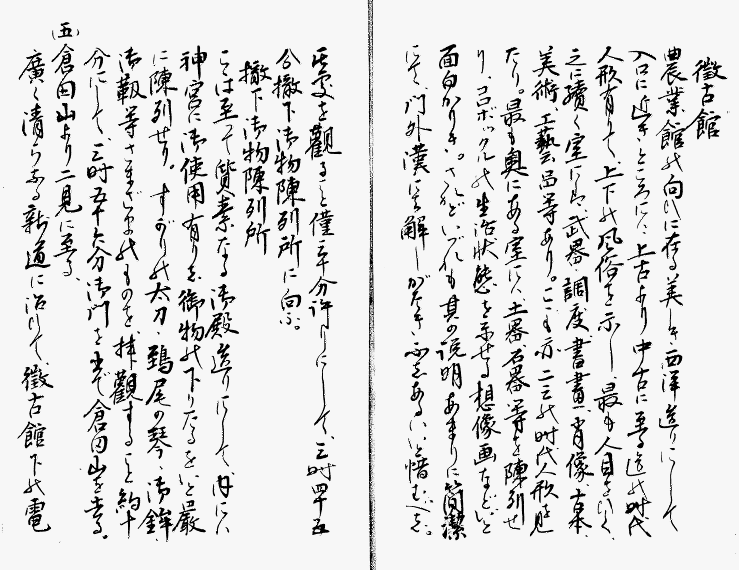 徴古館
農業館の向ひに在る美しき西洋造りにして
入口に近きところには、上古より中古に至る迄の時代
人形有りて、上下の風俗を示し、最も人目をひく、
之に續く室には、武器、調度、書畫、肖像、古本、
美術、工藝品等あり。こゝも亦二三の時代人形を見
たり。最も奥にある室には、土器、石器等を陳列せ
り、コロボックルの生活状態を示せる想像画などいと
面白かりき。されどいづれも其の説明あまりに簡潔
にて、門外漢には解しがたきふしあるはいと惜むべき。
を觀ること僅三十分許りにして、三時四十五
分撤下御物陳列所に向ふ。
撤下御物陳列所
こは至つて質素なる御殿造りにして、内には
神宮に御使用有りし御物の下りたるをいと嚴
に陳列せり。すがりの太刀、鵄尾の琴、御鉾、
御靱等さまざまのものを拝觀すること約十
分にして、三時五十六分御門を出で倉田山を去る。
(五)倉田山より二見に至る、
廣く清らなる新道に沿ひて、徴古館下の電